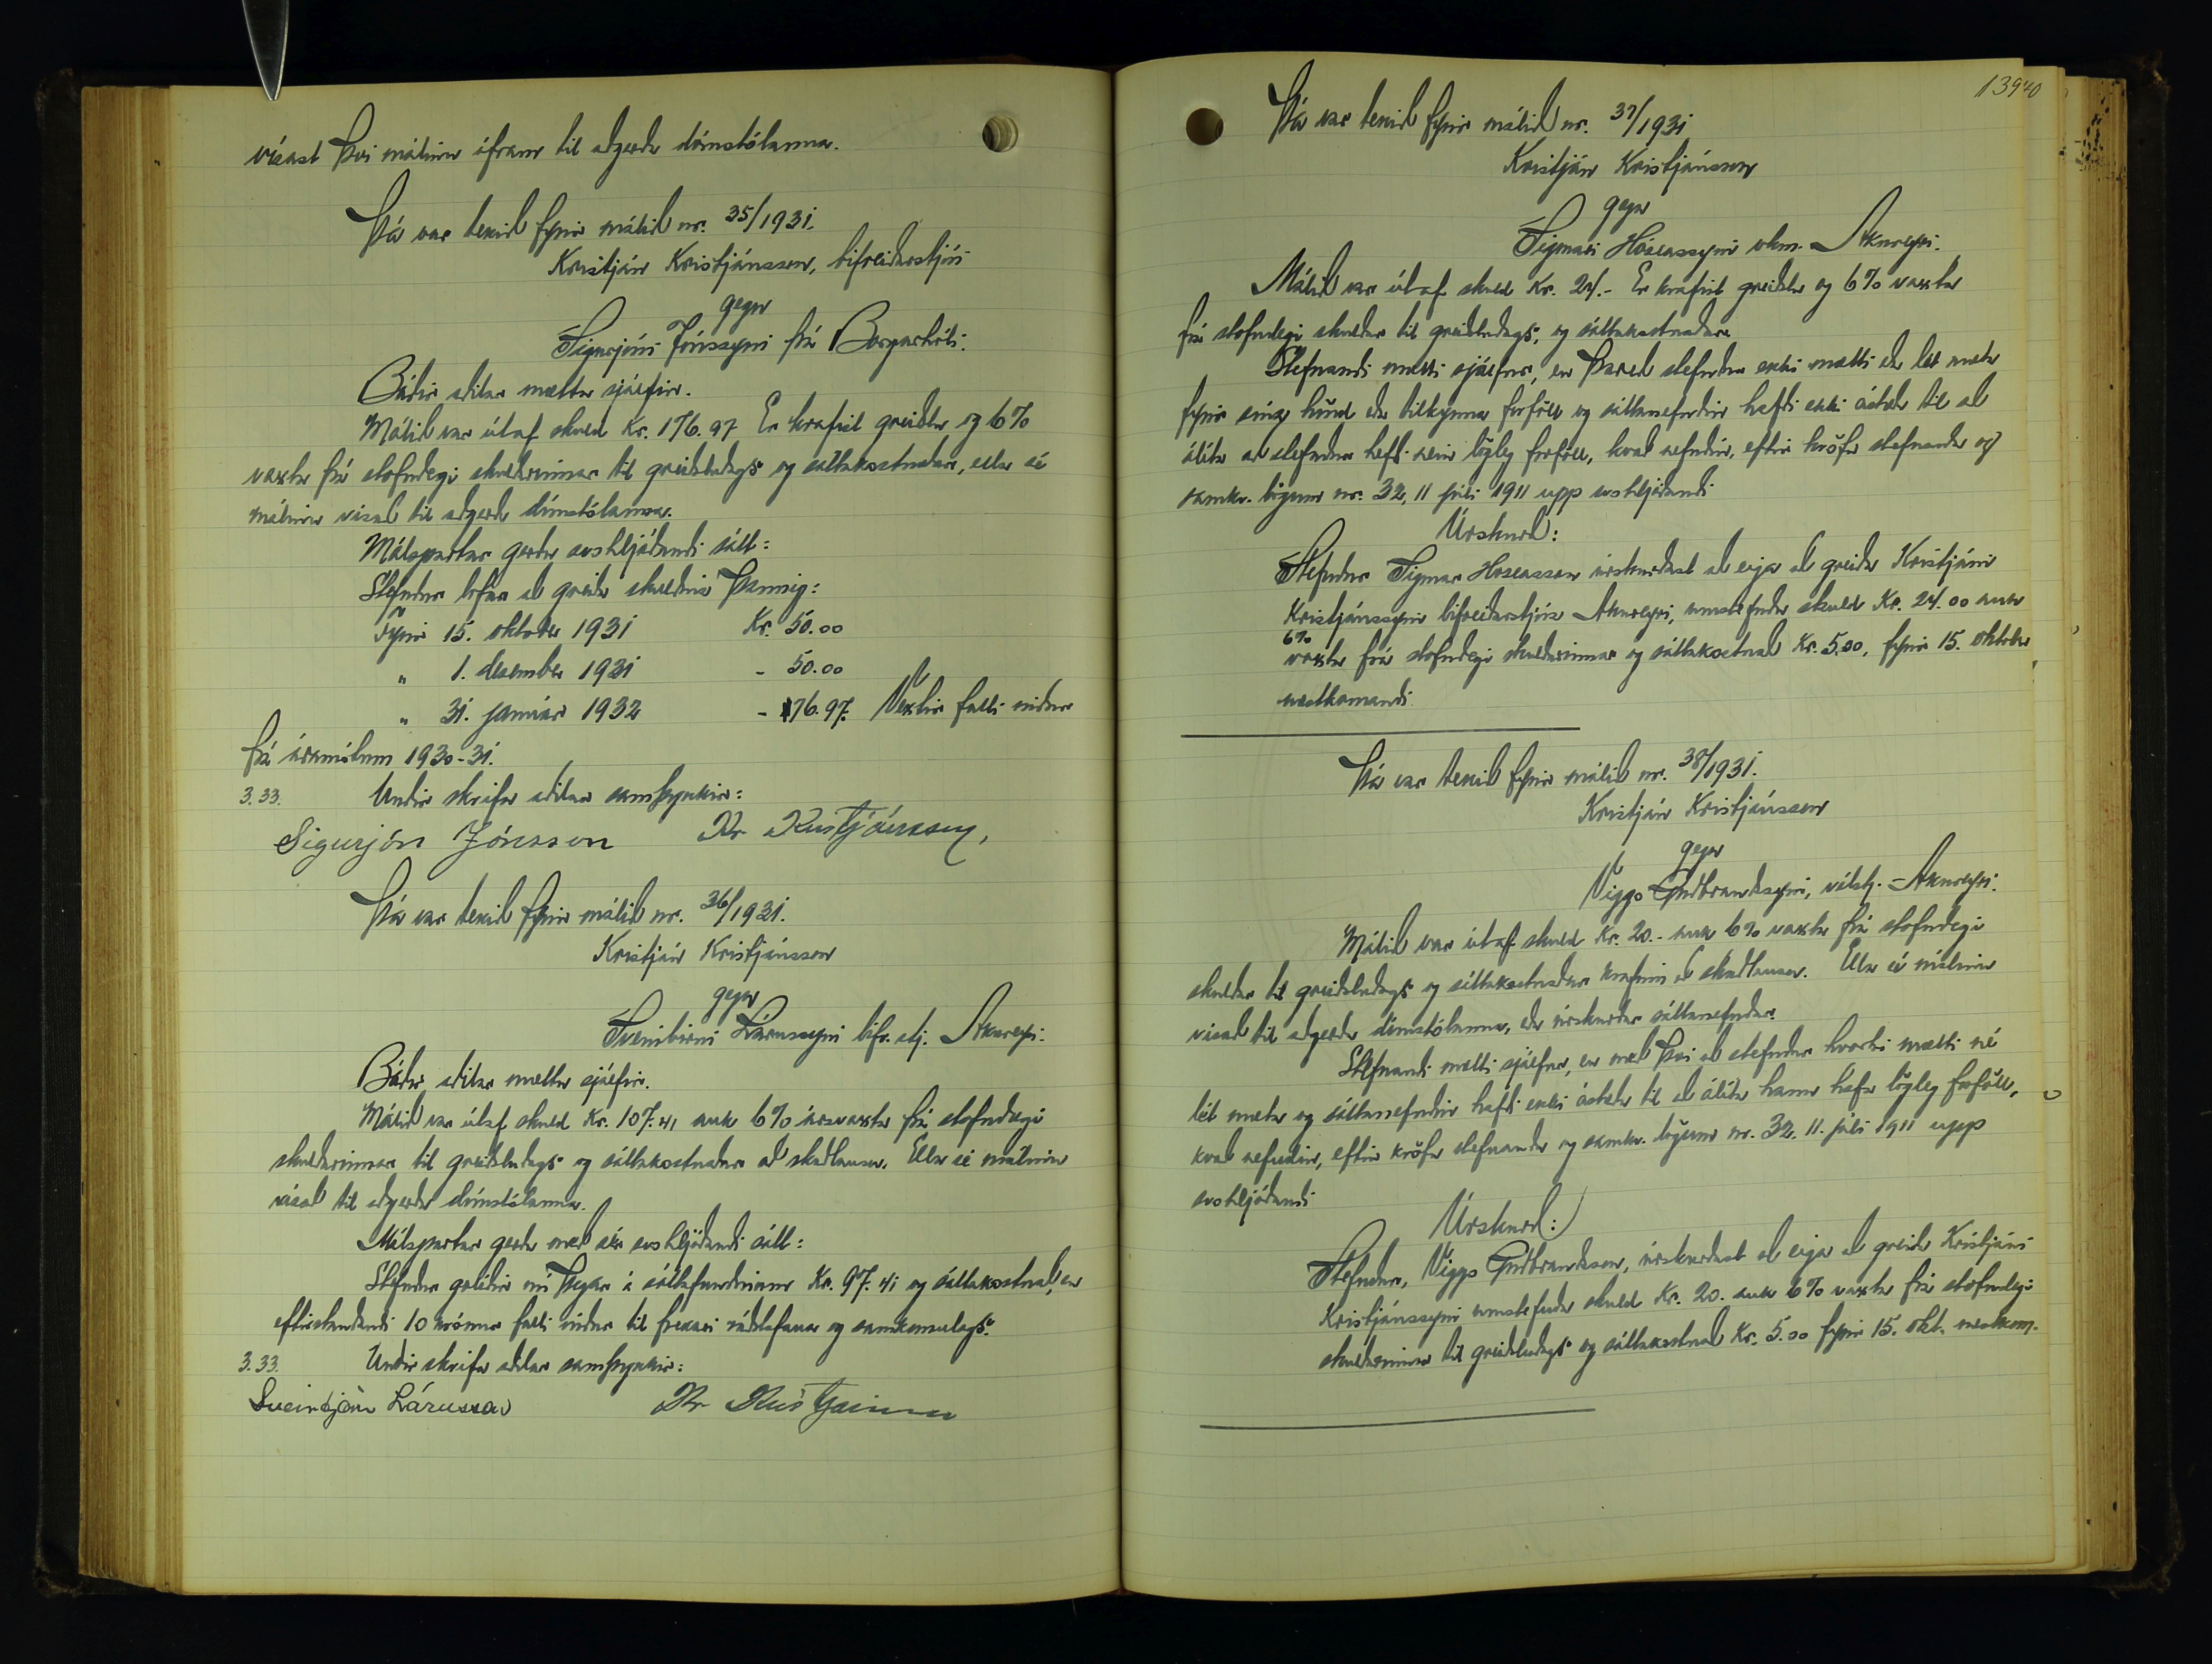 vísast því málinu áfram til aðgerða dómstólanna.
Þá var tekið fyrir málið nr. 35/1931.
Kristján Kristjánsson, bifreiðarstjóri
gegn
Sigurjóni Jónssyni frá Borgarhóli.
Báðir aðilar mættu sjálfir.
Málið var útaf skuld Kr. 176.97 Er krafist greiðslu og 6%
vaxta frá stofndegi skuldarinnar til greiðsludags og sáttakostnaðar, ella sé
málinu vísað til aðgerða dómstólanna.
Málspartar gerðu svohljóðandi sátt:
Stefndur lofar að greiða skuldina þannig:
Fyrir 15. október 1931 Kr. 50.00
" 1. desember 1931 - 50.00
" 31. janúar 1932 - 76.97. Vextir falli niður
frá áramótum 1930-31.
3.33. Undir skrifa aðilar samþykkir:
Sigurjón Jónsson Kr Kristjánsson,
Þá var tekið fyrir málið nr. 36/1931.
Kristján Kristjánsson
gegn
Sveinbirni Lárussyni bifr. stj. Akureyri.
Báðir aðilar mættu sjálfir.
Málið var útaf skuld Kr. 107.41 auk 6% ársvaxta frá stofndegi
skuldarinnar til greiðsludags og sáttakostnaðar að skaðlausu. Ella sé málinu
vísað til aðgerða dómstólanna.
Málspartar gerðu með sér svohljóðandi sátt:
Stefndur greiðir nú þegar á sáttafundinum Kr. 97.41 og sáttakostnað, en
eftirstandandi 10 krónur falli niður til frekari ráðstafana og samkomulags.
3.33. Undir skrifa aðilar samþykkir:
Sveinbjörn Lárusson Kr Kristjánsson
13940
Þá var tekið fyrir málið nr. 37/1931
Kristján Kristjánsson
gegn
Sigmari Hóseassyni vkm. Akureyri.
Málið var útaf skuld Kr. 24.- Er krafist greiðslu og 6% vaxta
frá stofndegi skuldar til greiðsludags, og sáttakostnaðar.
Stefnandi mætti sjálfur, en þareð stefndur ekki mætti eða lét mæta
fyrir sína hönd eða tilkynna forföll og sáttanefndin hafði ekki ástæðu til að
álíta að stefndur hefði nein lögleg forföll, kvað nefndin, eftir kröfu stefnanda og
samkv. lögum nr. 32, 11 júlí 1911 upp svohljóðandi
Úrskurð:
Stefndur Sigmar Hóseasson úrskurðast að eiga að greiða Kristjáni
Kristjánssyni bifreiðarstjóra Akureyri, umstefnda skuld Kr. 24.00 auk
6%
vaxta frá stofndegi skuldarinnar og sáttakostnað Kr. 5.00, fyrir 15. október
næstkomandi.
Þá var tekið fyrir málið nr. 38/1931.
Kristján Kristjánsson
gegn
Viggo Guðbrandssyni, vélstj. - Akureyri.
Málið var útaf skuld Kr. 20.- auk 6% vaxta frá stofndegi
skuldar til greiðsludags og sáttakostnaðar krafinn að skaðlausu. Ella sé málinu
vísað til aðgerða dómstólanna, eða úrskurðar sáttanefndar.
Stefnandi mætti sjálfur, en með því að stefndur hvorki mætti né
lét mæta og sáttanefndin hafði ekki ástæðu til að álíta hann hafa lögleg forföll,
kvað nefndin, eftir kröfu stefnanda og samkv. lögum nr. 32, 11. júlí 1911 upp
svohljóðandi
Úrskurð:
Stefndur, Viggo Guðbrandsson, úrskurðast að eiga að greiða Kristjáni
Kristjánssyni umstefnda skuld Kr. 20. auk 6% vaxta frá stofndegi
skuldarinnar til greiðsludags og sáttakostnað Kr. 5.00 fyrir 15. okt. næstkom.